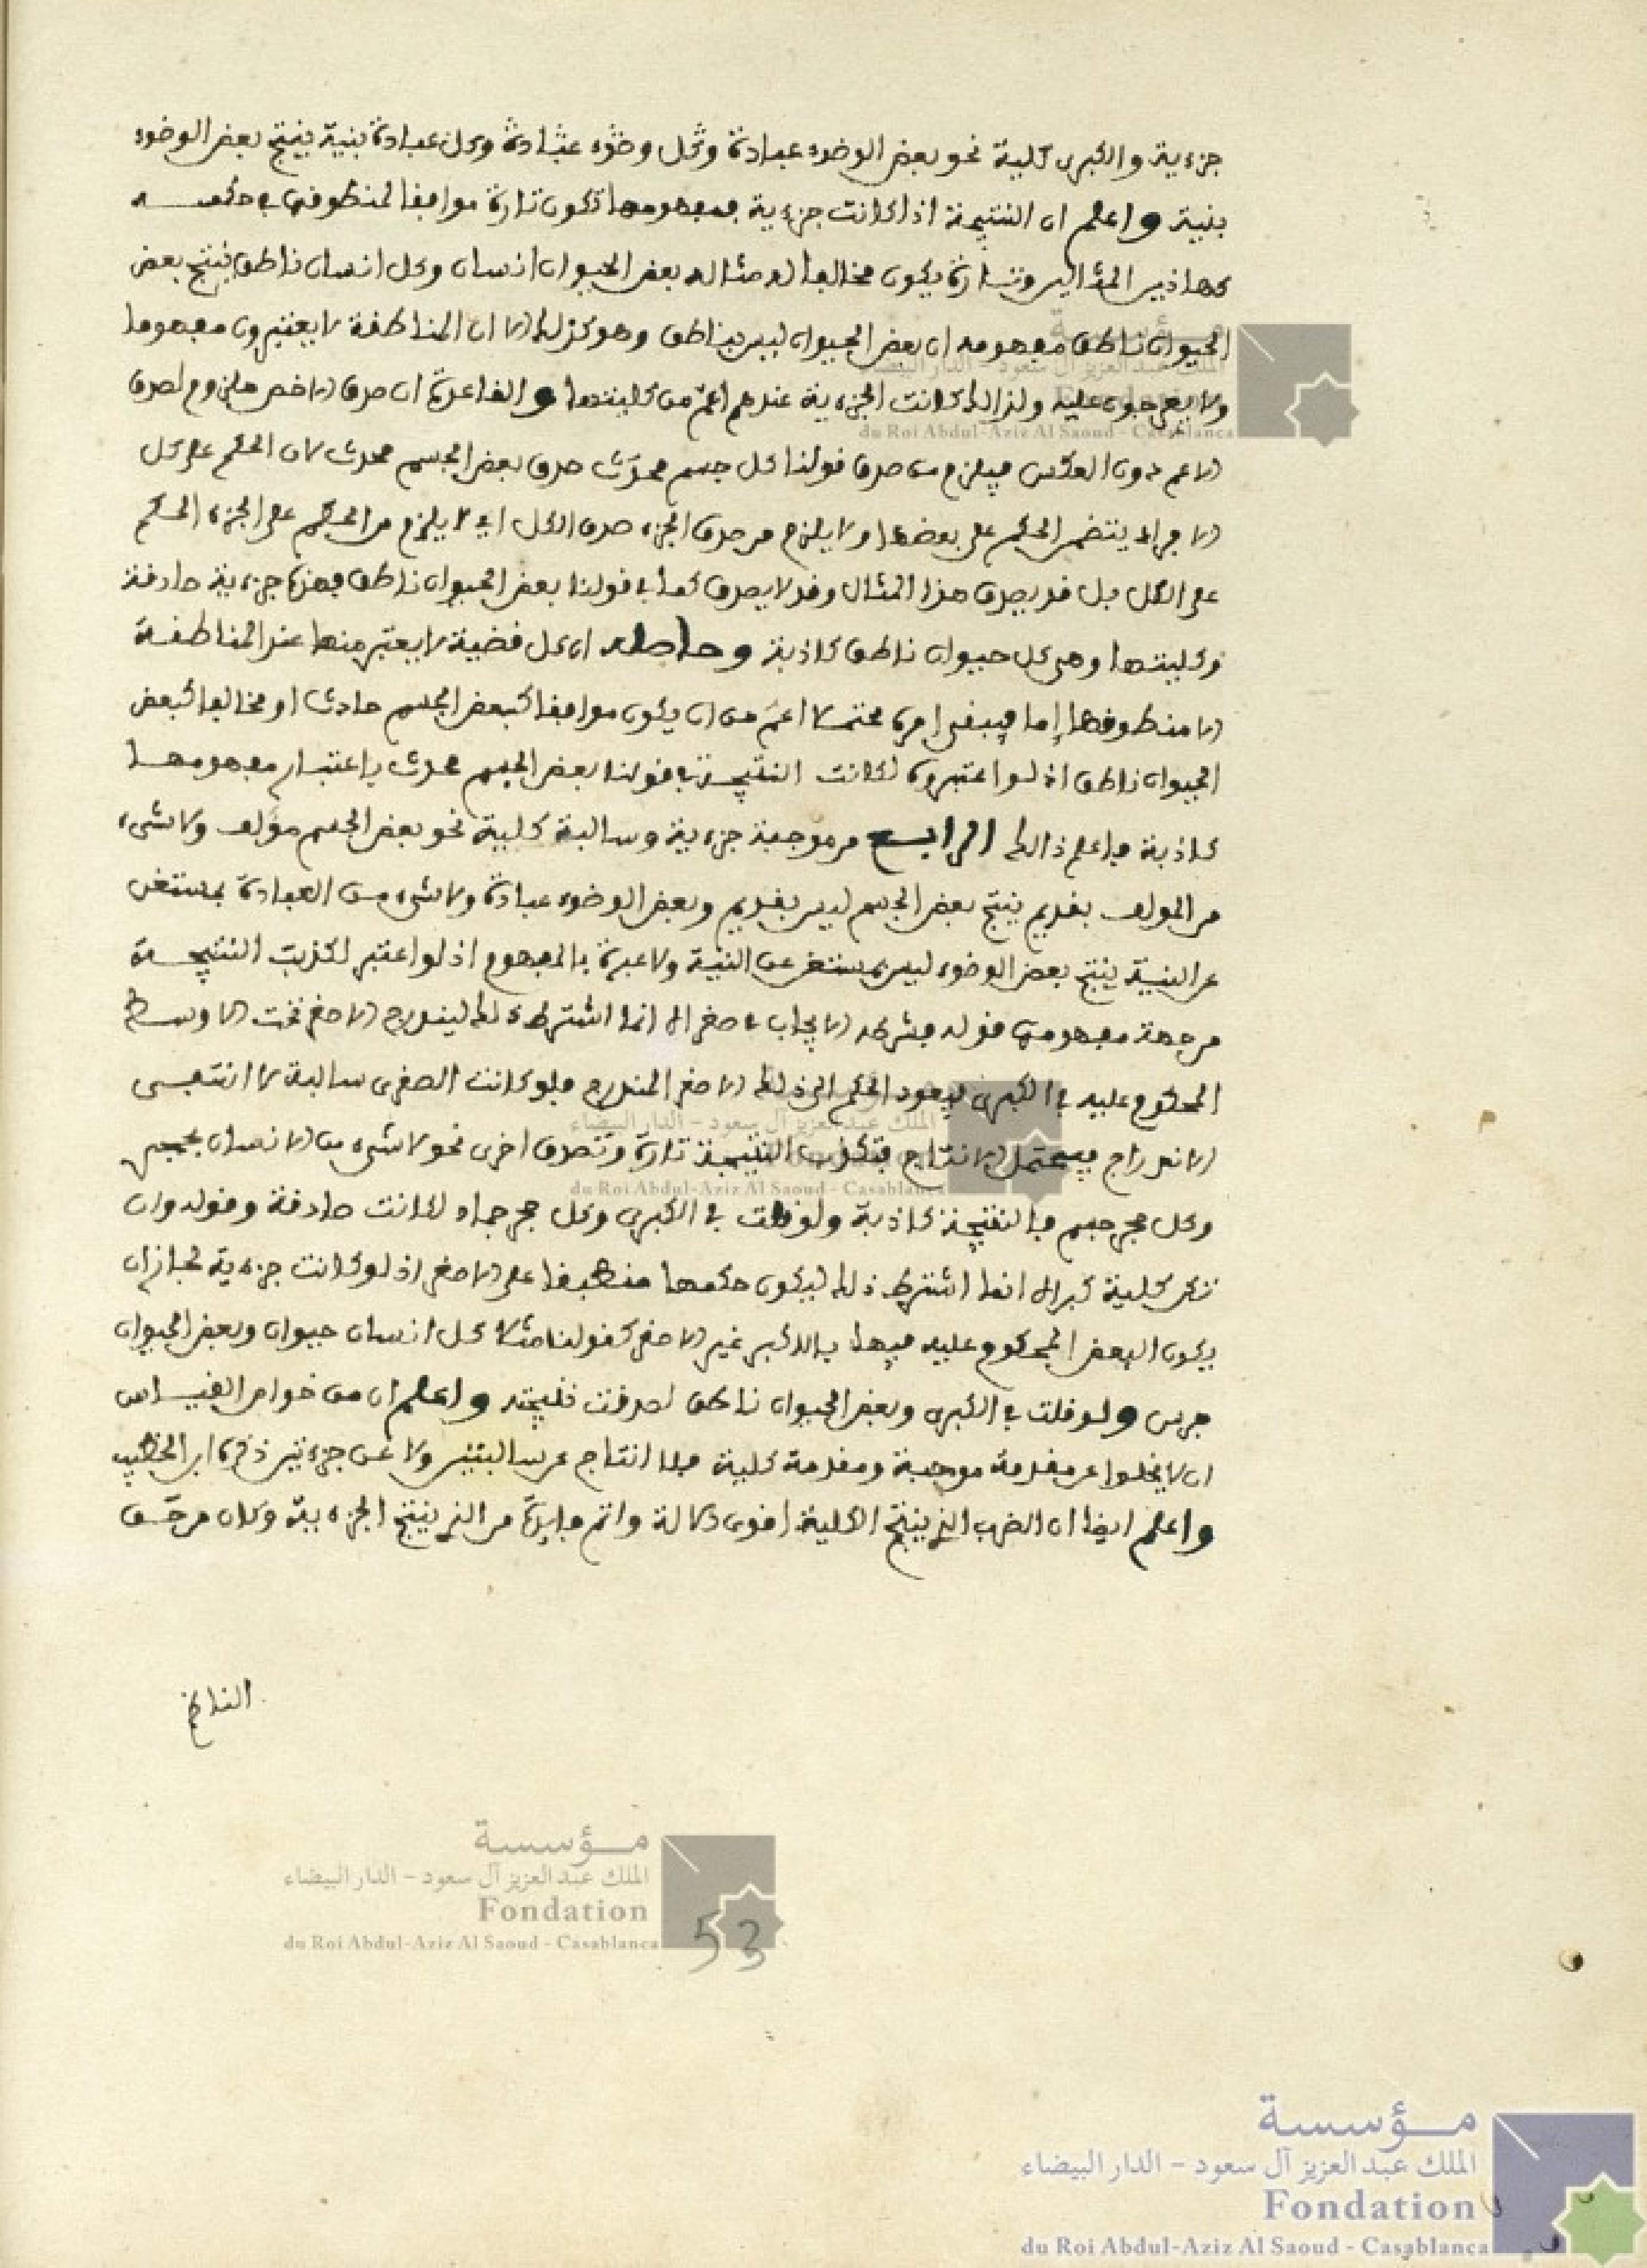 جزءية والكبرى كلية نحو بعض الوضوء عبادة وكل وضوء عبادة وكل عبادة بنية ينتج بعض الوضوء
بنية واعلم ان النتيجة اذا كانت جزءية فمفهومها تكون تارة موافقا لمنطوقها في حكمه
كهاذين المثالين وتارة يكون مخالفا له مثاله بعض الحيوان انسان وكل انسان ناطق ينتج بعض
الحيوان ناطق مفهومه ان بعض الحيوان ليس بناطق وهو كذلك الا ان المناطقة لا يعتبرون مفهوما
ولا يعرجون عليه ولذالك كانت الجزءية عندهم اعم من كليتها والقاعدة ان صدق الاخص ملزوم لصدق
الاعم دون العكس فيلزم من صدق قولنا كل جسم محدث صدق بعض الجسم محدث لان الحكم على كل
الافراد يتضمن الحكم على بعضها ولا يلزم من صدق الجزء صدق الكل اي لا يلزم من الحكم على الجزء الحكم
على الكل بل قد يصدق هذا المثال وقد لا يصدق كما في قولنا بعض الحيوان ناطق فهذه جزءية صادقة
وكليتها وهي كل حيوان ناطق كاذبة وحاصله ان كل قضية لا يعتبر منها عند المناطقة
الا منطوقها إما فيبقى امره محتملا اعم من ان يكون موافقا كبعض الجسم حادث او مخالفا كبعض
الحيوان ناطق اذ لو اعتبروه لكانت النتيجة في قولنا بعض الجسم محدث باعتبار مفهومها
كاذبة فاعلم ذالك الرابع من موجبة جزءية وسالبة كلية نحو بعض الجسم مؤلف ولا شيء
من المولف بقديم ينتج بعض الجسم ليس بقديم وبعض الوضوء عبادة ولا شيء من العبادة بمستغن
عن النية ينتج بعض الوضوء ليس بمستغن عن النية ولا عبرة بالمفهوم اذ لو اعتبر لكذبت النتيجة
من جهة مفهومها قوله فشرطه الايجاب في صغراه انما اشترط ذلك ليندرج الاصغر تحت الاوسط
المحكوم عليه في الكبرى فيعود الحكم الى ذلك الاصغر المندرج فلو كانت الصغرى سالبة لانتفى
الاندراج فيحتمل الانتاج فتكذب النتيجة تارة وتصدق اخرى نحو لا شيء من الانسان بحجر
وكل حجر جسم فالنتيجة كاذبة ولو قلت في الكبرى وكل حجر جماد لكانت صادقة وقوله وان
تكن كلية كبراه انما اشترط ذلك ليكون حكمها منطبقا على الاصغر اذ لو كانت جزءية لجاز ان
يكون البعض المحكوم عليه فيها بالاكبر غير الاصغر كقولنا مثلا كل انسان حيوان وبعض الحيوان
فرس ولو قلت في الكبرى وبعض الحيوان ناطق لصدقت نتيجته واعلم ان من خواص القياس
ان لا يخلوا عن مقدمة موجبة ومقدمة كلية فلا انتاج عن سالبتين ولا عن جزءيتين ذكره ابن الخطيب
واعلم ايضا ان الضرب الذي ينتج الكلية اقوى دلالة واتم فايدة من الذي ينتج الجزءية وكان من حق
الناتج
مؤسسة
الملك عبد العزيز آل سعود - الدار البيضاء
Fondation
du Roi Abdul-Aziz Al Saoud - Casablanca
53
مؤسسة
الملك عبد العزيز آل سعود - الدار البيضاء
Fondation
du Roi Abdul-Aziz Al Saoud - Casablanca